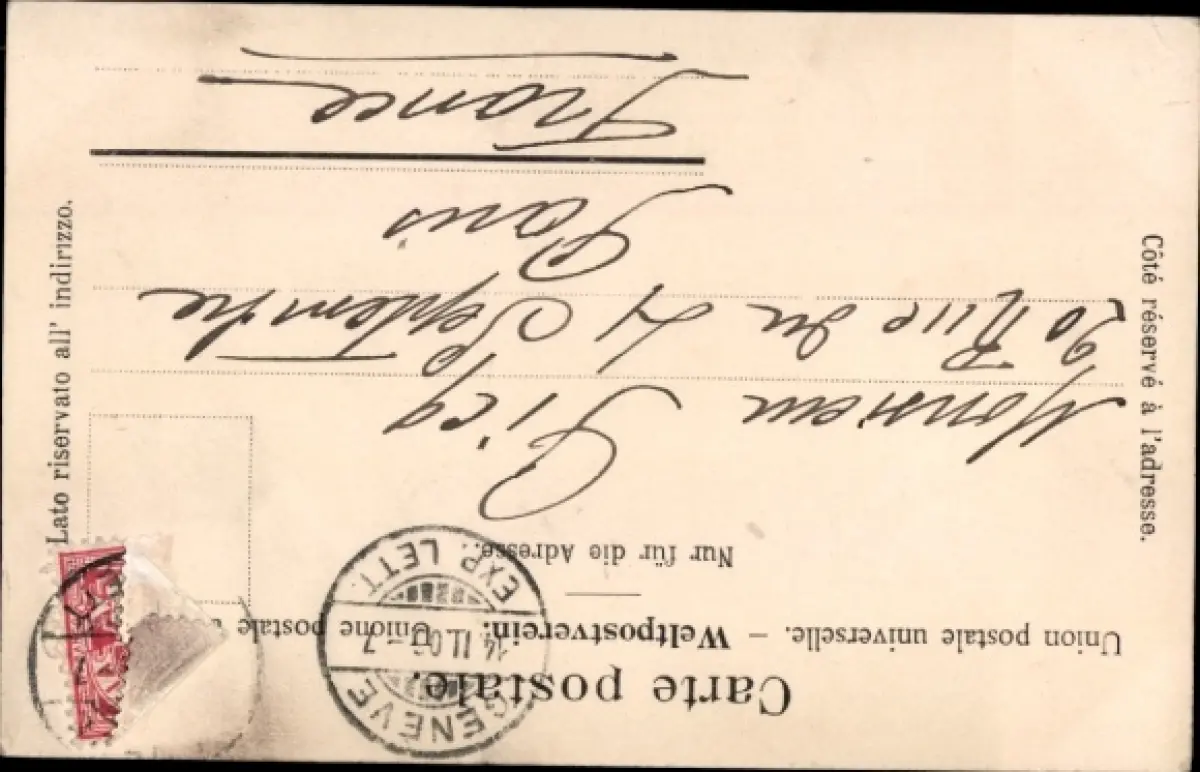 Carte postale.
Union postale universelle. – Weltpostverein. Unione postale
Nur für die Adresse.
Côté réservé à l'adresse.
Lato riservato all' indirizzo.
GENEVE
14 II
– 7
EXP. LETT.
Monsieur Picq
20 Rue du 4 Septembre
Paris
France